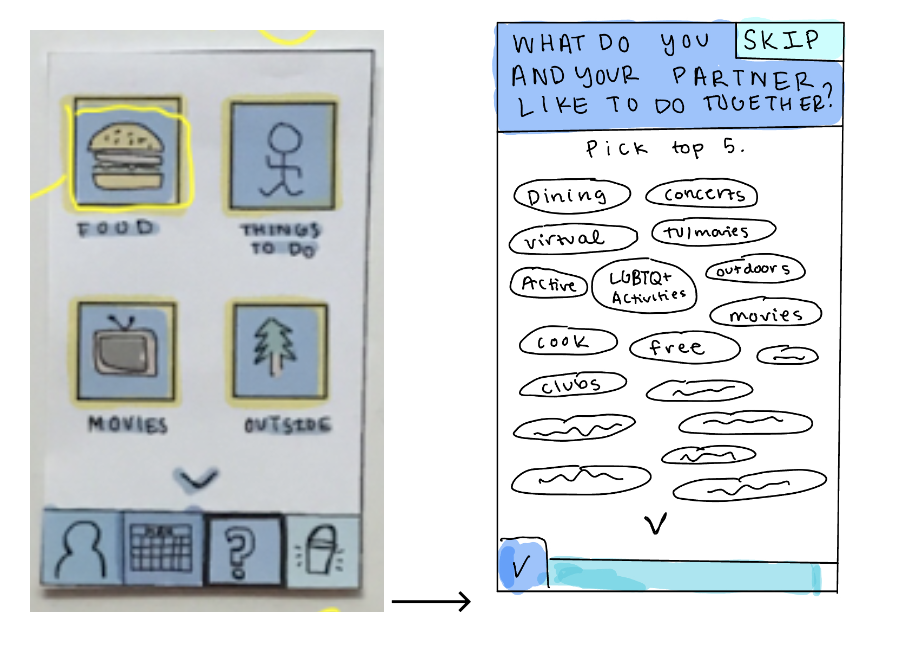 FOOD
THINGS
TO DO
MOVIES
OUTSIDE
?
WHAT DO YOU
AND YOUR PARTNER
LIKE TO DO TOGETHER?
SKIP
Pick top 5.
Dining
concerts
virtual
tv/movies
Active
LGBTQ+
Activities
outdoors
movies
cook
free
clubs